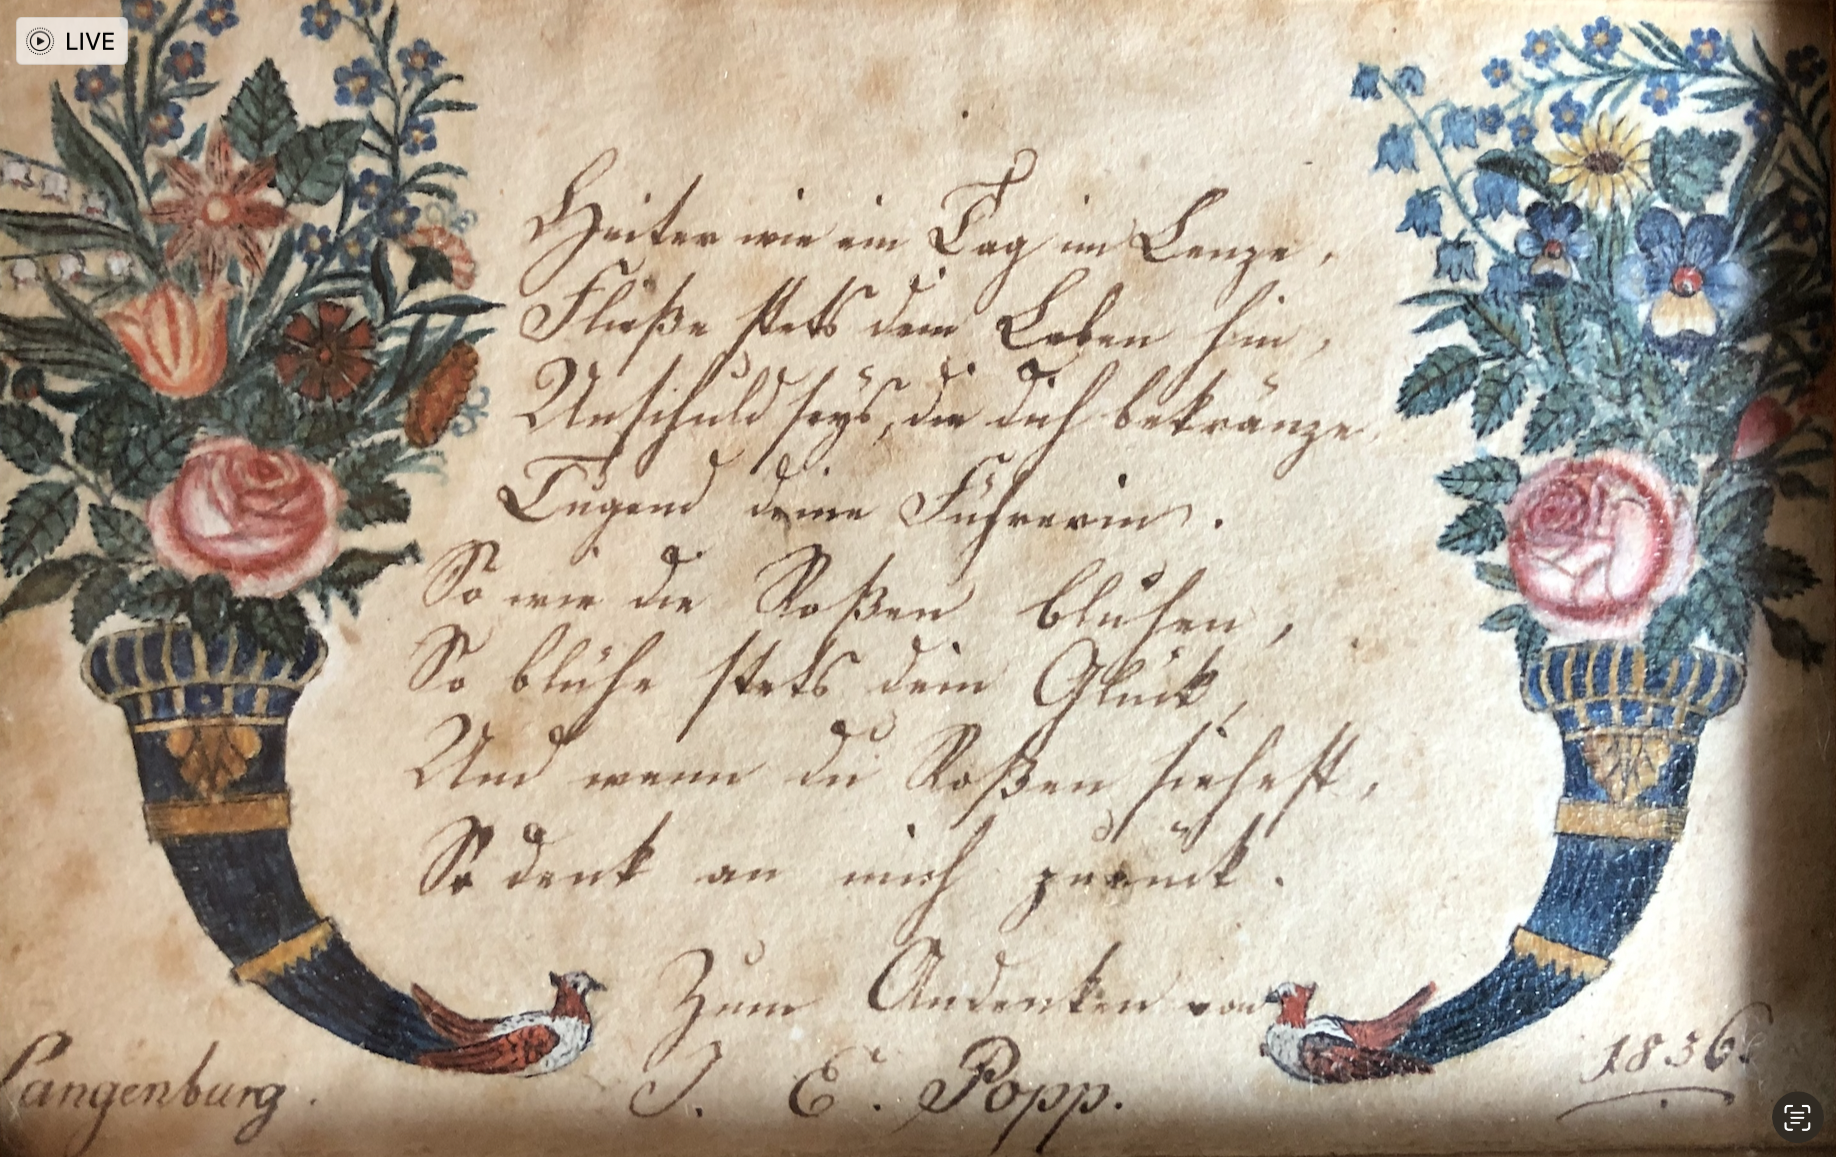 LIVE
Heiter wie ein Tag im Lenze,
Fließe stets dein Leben hin,
Unschuld seys, die dich bekränze,
Tugend deine Führerin.
So wie die Roßen blühen,
So blühe stets dein Glück,
Und wenn du Roßen siehest,
So denk an mich zurück.
Zum Andenken von
J. E. Popp.
Langenburg.
1836.